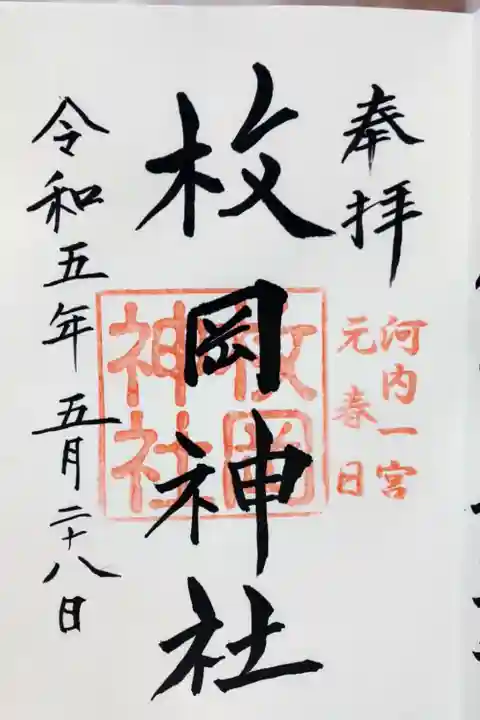 奉拝
河内一宮
元春日
枚岡神社
枚岡
神社
令和五年五月二十八日